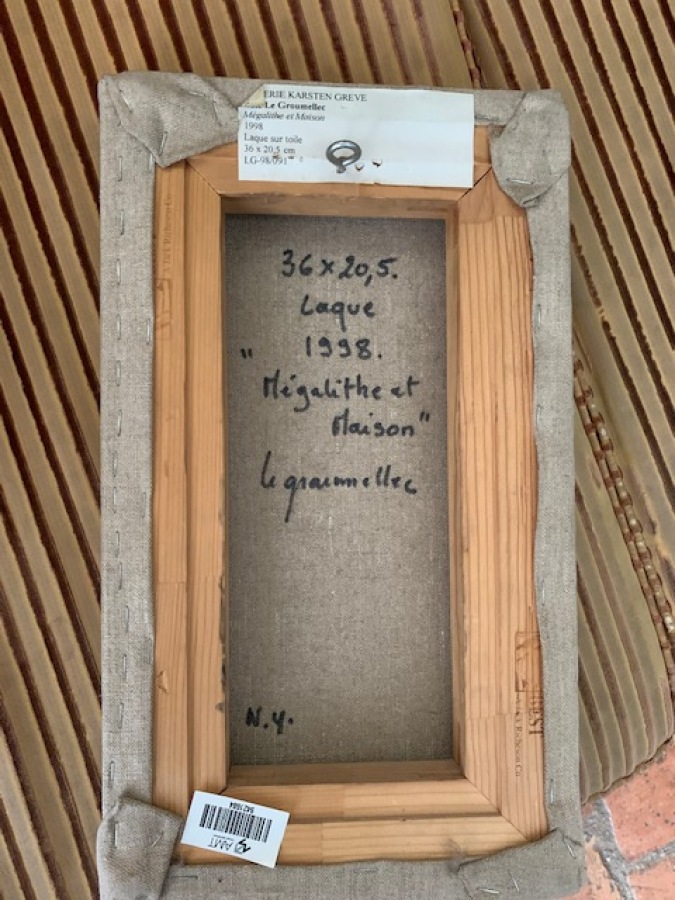 ERIE KARSTEN GREVE
Le Groumellec
Mégalithe et Maison
1998
Laque sur toile
36 x 20,5 cm
LG-98/091
36 x 20,5.
Laque
" 1998.
Mégalithe et
Maison"
le groumellec
N.Y.
BEST
Jack Richeson Co.
5421684
AMT